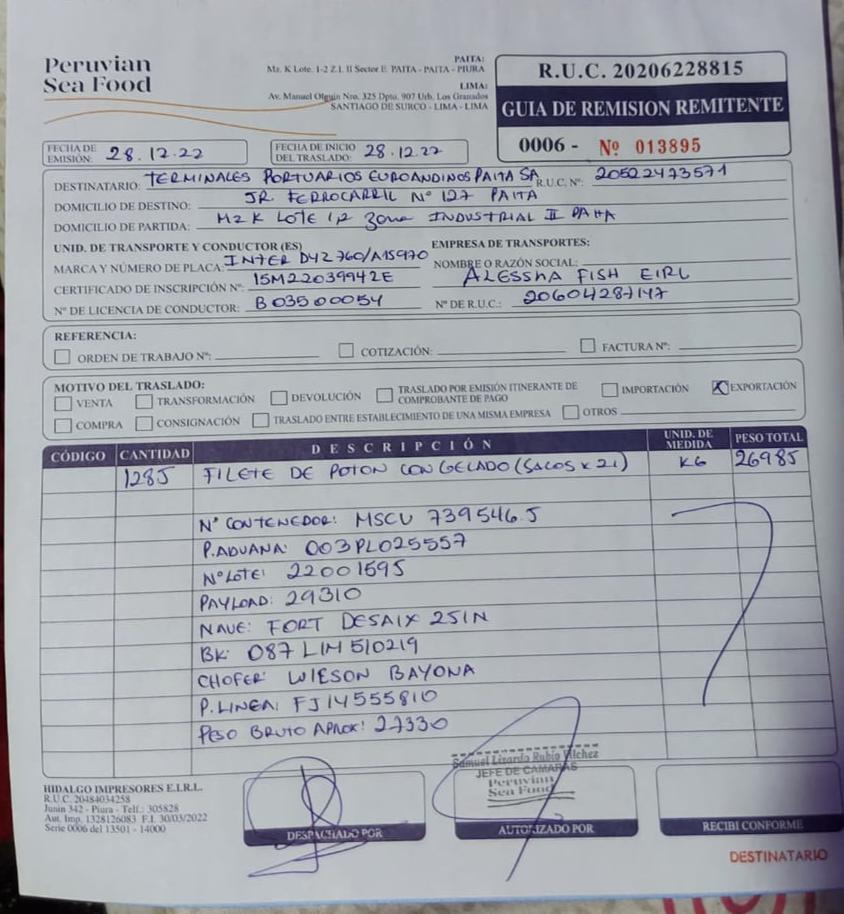 Peruvian
Sea Food
PAITA:
Mz. K Lote. 1-2 Z.I. II Sector E. PAITA - PAITA - PIURA
LIMA:
Av. Manuel Olguin Nro. 325 Dpto. 907 Urb. Los Granados
SANTIAGO DE SURCO - LIMA - LIMA
R.U.C. 20206228815
GUIA DE REMISION REMITENTE
0006 - Nº 013895
FECHA DE EMISIÓN: 28.12.22
FECHA DE INICIO DEL TRASLADO: 28.12.22
DESTINATARIO: TERMINALES PORTUARIOS EUROANDINOS PAITA SA R.U.C. Nº: 20522473571
DOMICILIO DE DESTINO: JR. FERROCARRIL Nº 127 PAITA
DOMICILIO DE PARTIDA: MZ K LOTE 1,2 ZONA INDUSTRIAL II PAITA
UNID. DE TRANSPORTE Y CONDUCTOR (ES) EMPRESA DE TRANSPORTES:
MARCA Y NÚMERO DE PLACA: INTER D4Z 760/A1S970 NOMBRE O RAZÓN SOCIAL: ALESSMA FISH EIRL
CERTIFICADO DE INSCRIPCIÓN Nº: 15M22039942E
Nº DE LICENCIA DE CONDUCTOR: B03500054 Nº DE R.U.C.: 20604287147
REFERENCIA:
ORDEN DE TRABAJO Nº: COTIZACIÓN: FACTURA Nº:
MOTIVO DEL TRASLADO:
VENTA TRANSFORMACIÓN DEVOLUCIÓN TRASLADO POR EMISIÓN ITINERANTE DE COMPROBANTE DE PAGO IMPORTACIÓN X EXPORTACIÓN
COMPRA CONSIGNACIÓN TRASLADO ENTRE ESTABLECIMIENTO DE UNA MISMA EMPRESA OTROS
CÓDIGO CANTIDAD DESCRIPCIÓN UNID. DE MEDIDA PESO TOTAL
1285 FILETE DE POTON CONGELADO (SACOS x 21) KG 26985
Nº CONTENEDOR: MSCU 739546.5
P.ADUANA: 003PL025557
Nº LOTE: 22001595
PAYLOAD: 29310
NAVE: FORT DESAIX 251N
BK: 087 LIM 510219
CHOFER: WILSON BAYONA
P.LINEA: FJ14555810
PESO BRUTO APROX: 27330
HIDALGO IMPRESORES E.I.R.L.
R.U.C. 20484034258
Junin 342 - Piura - Telf.: 305828
Aut. Imp. 1328126083 F.I. 30/03/2022
Serie 0006 del 13501 - 14000
Samuel Lizardo Rubio Vilchez
JEFE DE CAMARAS
Peruvian
Sea Food
DESPACHADO POR
AUTORIZADO POR
RECIBI CONFORME
DESTINATARIO